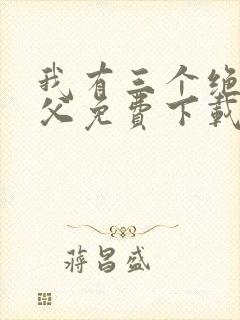 我有三个绝
父免费下载
蒋昌盛